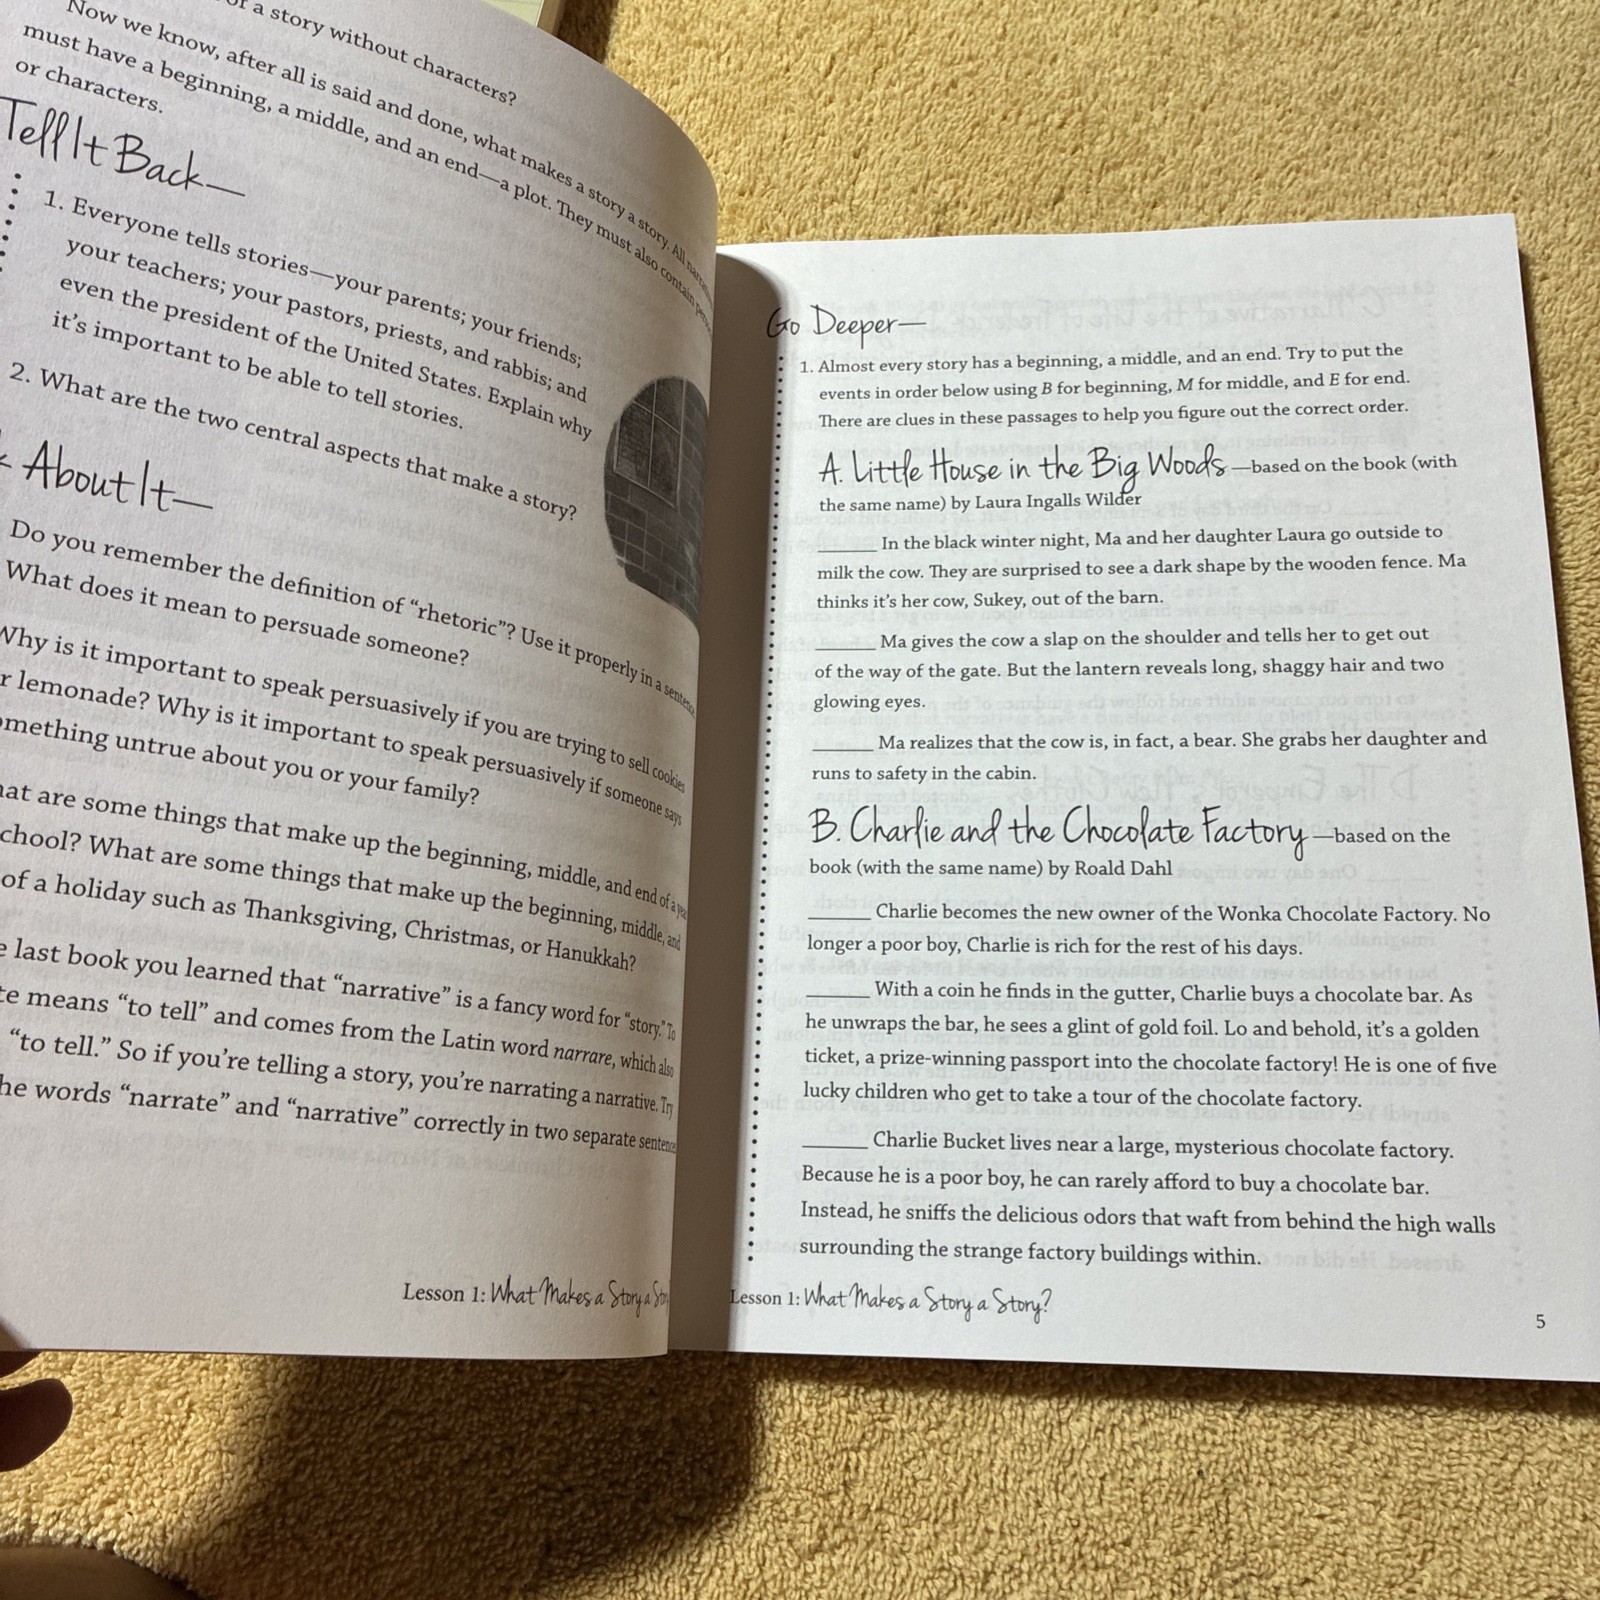 of a story without characters?
Now we know, after all is said and done, what makes a story a story. All
must have a beginning, a middle, and an end—a plot. They must also contain
or characters.
Tell It Back—
1. Everyone tells stories—your parents; your friends;
your teachers; your pastors, priests, and rabbis; and
even the president of the United States. Explain why
it's important to be able to tell stories.
2. What are the two central aspects that make a story?
About It—
Do you remember the definition of "rhetoric"? Use it properly in a sentence.
What does it mean to persuade someone?
Why is it important to speak persuasively if you are trying to sell cookies
r lemonade? Why is it important to speak persuasively if someone says
omething untrue about you or your family?
hat are some things that make up the beginning, middle, and end of a
chool? What are some things that make up the beginning, middle, and
of a holiday such as Thanksgiving, Christmas, or Hanukkah?
e last book you learned that "narrative" is a fancy word for "story." To
te means "to tell" and comes from the Latin word narrare, which also
"to tell." So if you're telling a story, you're narrating a narrative. Try
he words "narrate" and "narrative" correctly in two separate sentence
Lesson 1: What Makes a Story a Sto
Go Deeper—
1. Almost every story has a beginning, a middle, and an end. Try to put the
events in order below using B for beginning, M for middle, and E for end.
There are clues in these passages to help you figure out the correct order.
A. Little House in the Big Woods—based on the book (with
the same name) by Laura Ingalls Wilder
______ In the black winter night, Ma and her daughter Laura go outside to
milk the cow. They are surprised to see a dark shape by the wooden fence. Ma
thinks it's her cow, Sukey, out of the barn.
______ Ma gives the cow a slap on the shoulder and tells her to get out
of the way of the gate. But the lantern reveals long, shaggy hair and two
glowing eyes.
______ Ma realizes that the cow is, in fact, a bear. She grabs her daughter and
runs to safety in the cabin.
B. Charlie and the Chocolate Factory—based on the
book (with the same name) by Roald Dahl
______ Charlie becomes the new owner of the Wonka Chocolate Factory. No
longer a poor boy, Charlie is rich for the rest of his days.
______ With a coin he finds in the gutter, Charlie buys a chocolate bar. As
he unwraps the bar, he sees a glint of gold foil. Lo and behold, it's a golden
ticket, a prize-winning passport into the chocolate factory! He is one of five
lucky children who get to take a tour of the chocolate factory.
______ Charlie Bucket lives near a large, mysterious chocolate factory.
Because he is a poor boy, he can rarely afford to buy a chocolate bar.
Instead, he sniffs the delicious odors that waft from behind the high walls
surrounding the strange factory buildings within.
Lesson 1: What Makes a Story a Story?
5